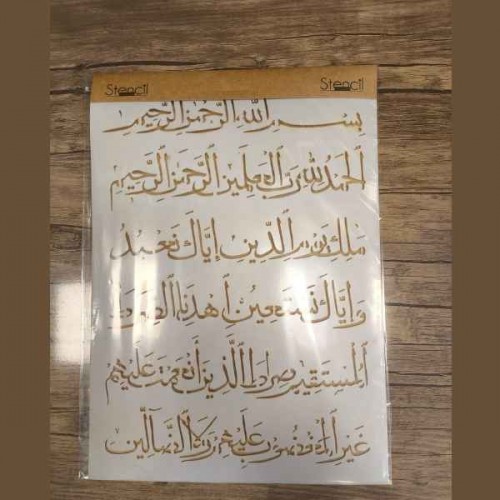 Stencil Stencil
بِسْمِ اللَّهِ الرَّحْمَٰنِ الرَّحِيمِ
الْحَمْدُ لِلَّهِ رَبِّ الْعَٰلَمِينَ الرَّحْمَٰنِ الرَّحِيمِ
مَٰلِكِ يَوْمِ الدِّينِ إِيَّاكَ نَعْبُدُ
وَإِيَّاكَ نَسْتَعِينُ اهْدِنَا الصِّرَاطَ
الْمُسْتَقِيمَ صِرَاطَ الَّذِينَ أَنْعَمْتَ عَلَيْهِمْ
غَيْرِ الْمَغْضُوبِ عَلَيْهِمْ وَلَا الضَّالِّينَ